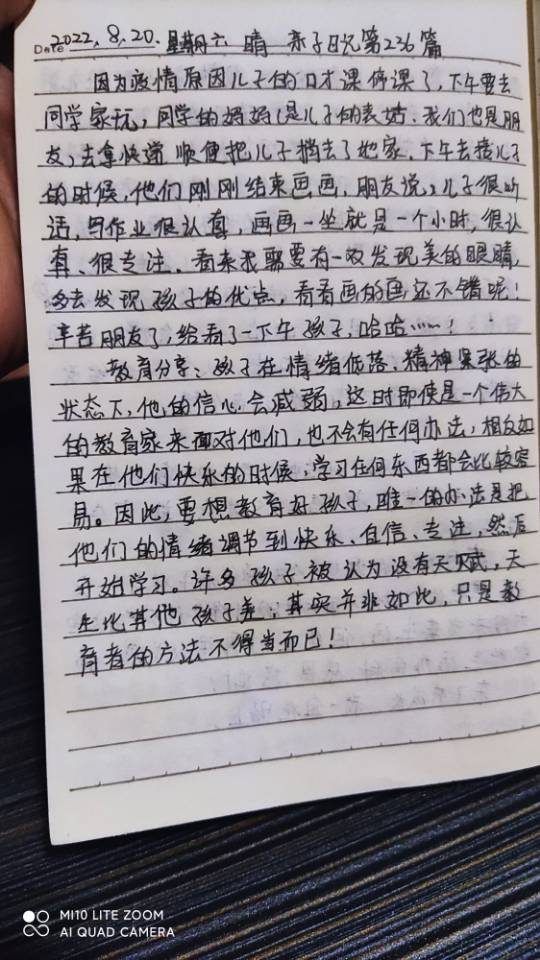 DATE 2022.8.20. 星期六 晴 亲子日记第236篇
因为疫情原因儿子的口才课停课了,下午要去
同学家玩,同学的妈妈(是儿子的表姑.我们也是朋
友)去拿快递顺便把儿子捎去了她家.下午去接儿子
的时候,他们刚刚结束画画,朋友说,儿子很听
话,写作业很认真,画画一坐就是一个小时,很认
真、很专注.看来我需要有一双发现美的眼睛,
多去发现孩子的优点,看看画的画还不错呢!
辛苦朋友了,给看了一下午孩子,哈哈……!
教育分享:孩子在情绪低落、精神紧张的
状态下,他的信心会减弱,这时即使是一个伟大
的教育家来面对他们,也不会有任何办法,相反如
果在他们快乐的时候,学习任何东西都会比较容
易。因此,要想教育好孩子,唯一的办法是把
他们的情绪调节到快乐、自信、专注,然后
开始学习。许多孩子被认为没有天赋,天
生比其他孩子差;其实并非如此,只是教
育者的方法不得当而已!
MI10 LITE ZOOM
AI QUAD CAMERA